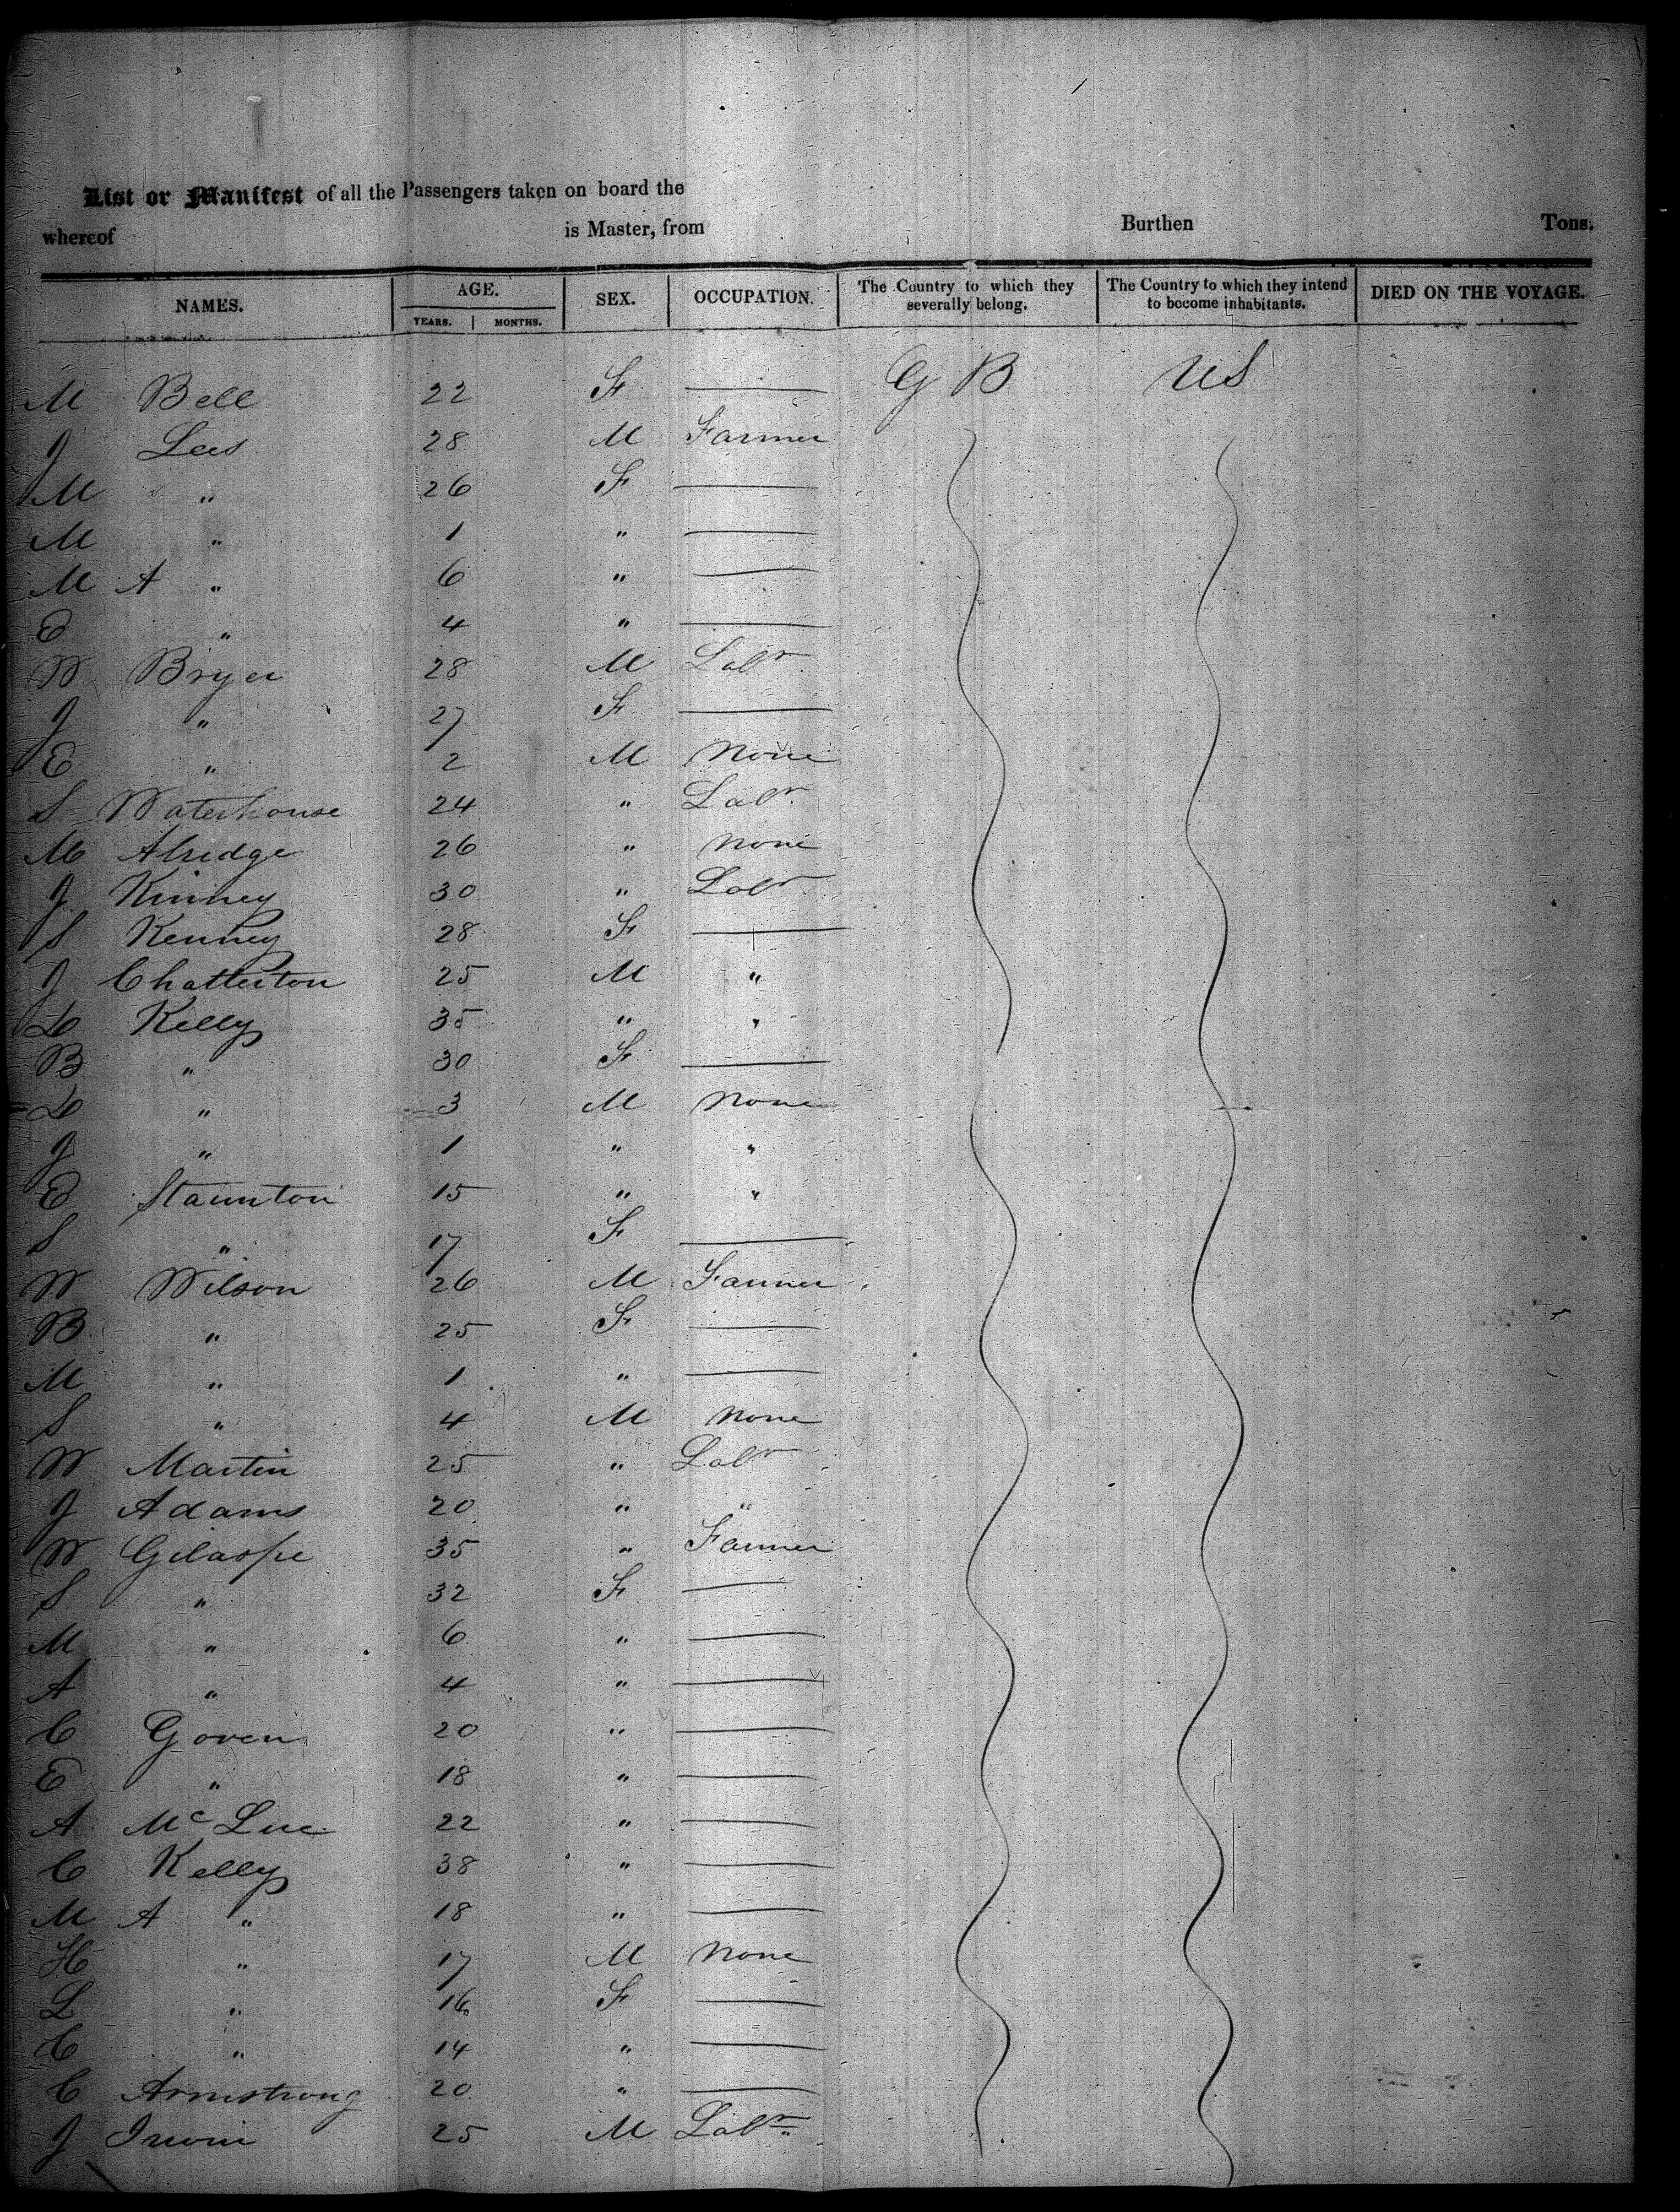 List or Manifest of all the Passengers taken on board the
whereof is Master, from Burthen Tons.
NAMES. AGE. SEX. OCCUPATION. The Country to which they severally belong. The Country to which they intend to become inhabitants. DIED ON THE VOYAGE.
YEARS. MONTHS.
M Bell 22 F — G B US
J Lees 28 M Farmer
M " 26 F —
M " 1 " —
M A " 6 " —
E " 4 " —
W Bryer 28 M Labr
J " 27 F —
E " 2 M None
S Waterhouse 24 " Labr
M Alridge 26 " None
J Kinney 30 " Labr
S Kenney 28 F —
J Chatterton 25 M "
L Kelly 35 " "
B " 30 F —
L " 3 M None
J " 1 " "
E Staunton 15 " "
S " 17 F —
W Wilson 26 M Farmer
B " 25 F —
M " 1 " —
S " 4 M None
W Martin 25 " Labr
J Adams 20 " "
W Gilaspe 35 " Farmer
S " 32 F —
M " 6 " —
A " 4 " —
C Goven 20 " —
E " 18 " —
A Mc Lue 22 " —
C Kelly 38 " —
M A " 18 " —
H " 17 M None
L " 16 F —
C " 14 " —
C Armstrong 20 " —
J Irwin 25 M Labr